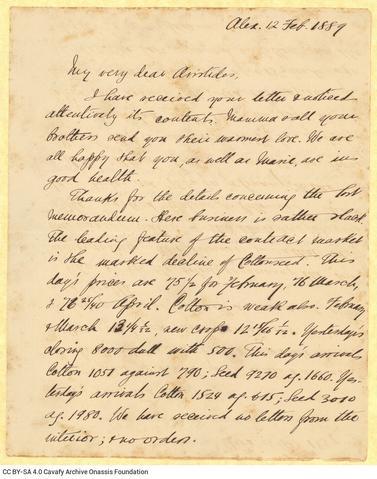 Alex. 12 Feb. 1889
My very dear Aristides,
I have received your letter & noticed
attentively its contents. Mamma & all your
brothers send you their warmest love. We are
all happy that you, as well as Marie, are in
good health.
Thanks for the details concerning the lost
memorandum. Here business is rather slack.
The leading feature of the contract market
is the marked decline of Cottonseed. This
day's prices are 75 1/2 for February, 76 March,
& 76 25/40 April. Cotton is weak also. February
& March new crop
closing 8000 dull with 500. This day's arrivals
Cotton 1051 against 790; Seed 9270 ag. 1660. Yes-
terday's arrivals Cotton 1524 ag. 615; Seed 3000
ag. 1980. We have received no letters from the
interior; & no orders.
CC BY-SA 4.0 Cavafy Archive Onassis Foundation